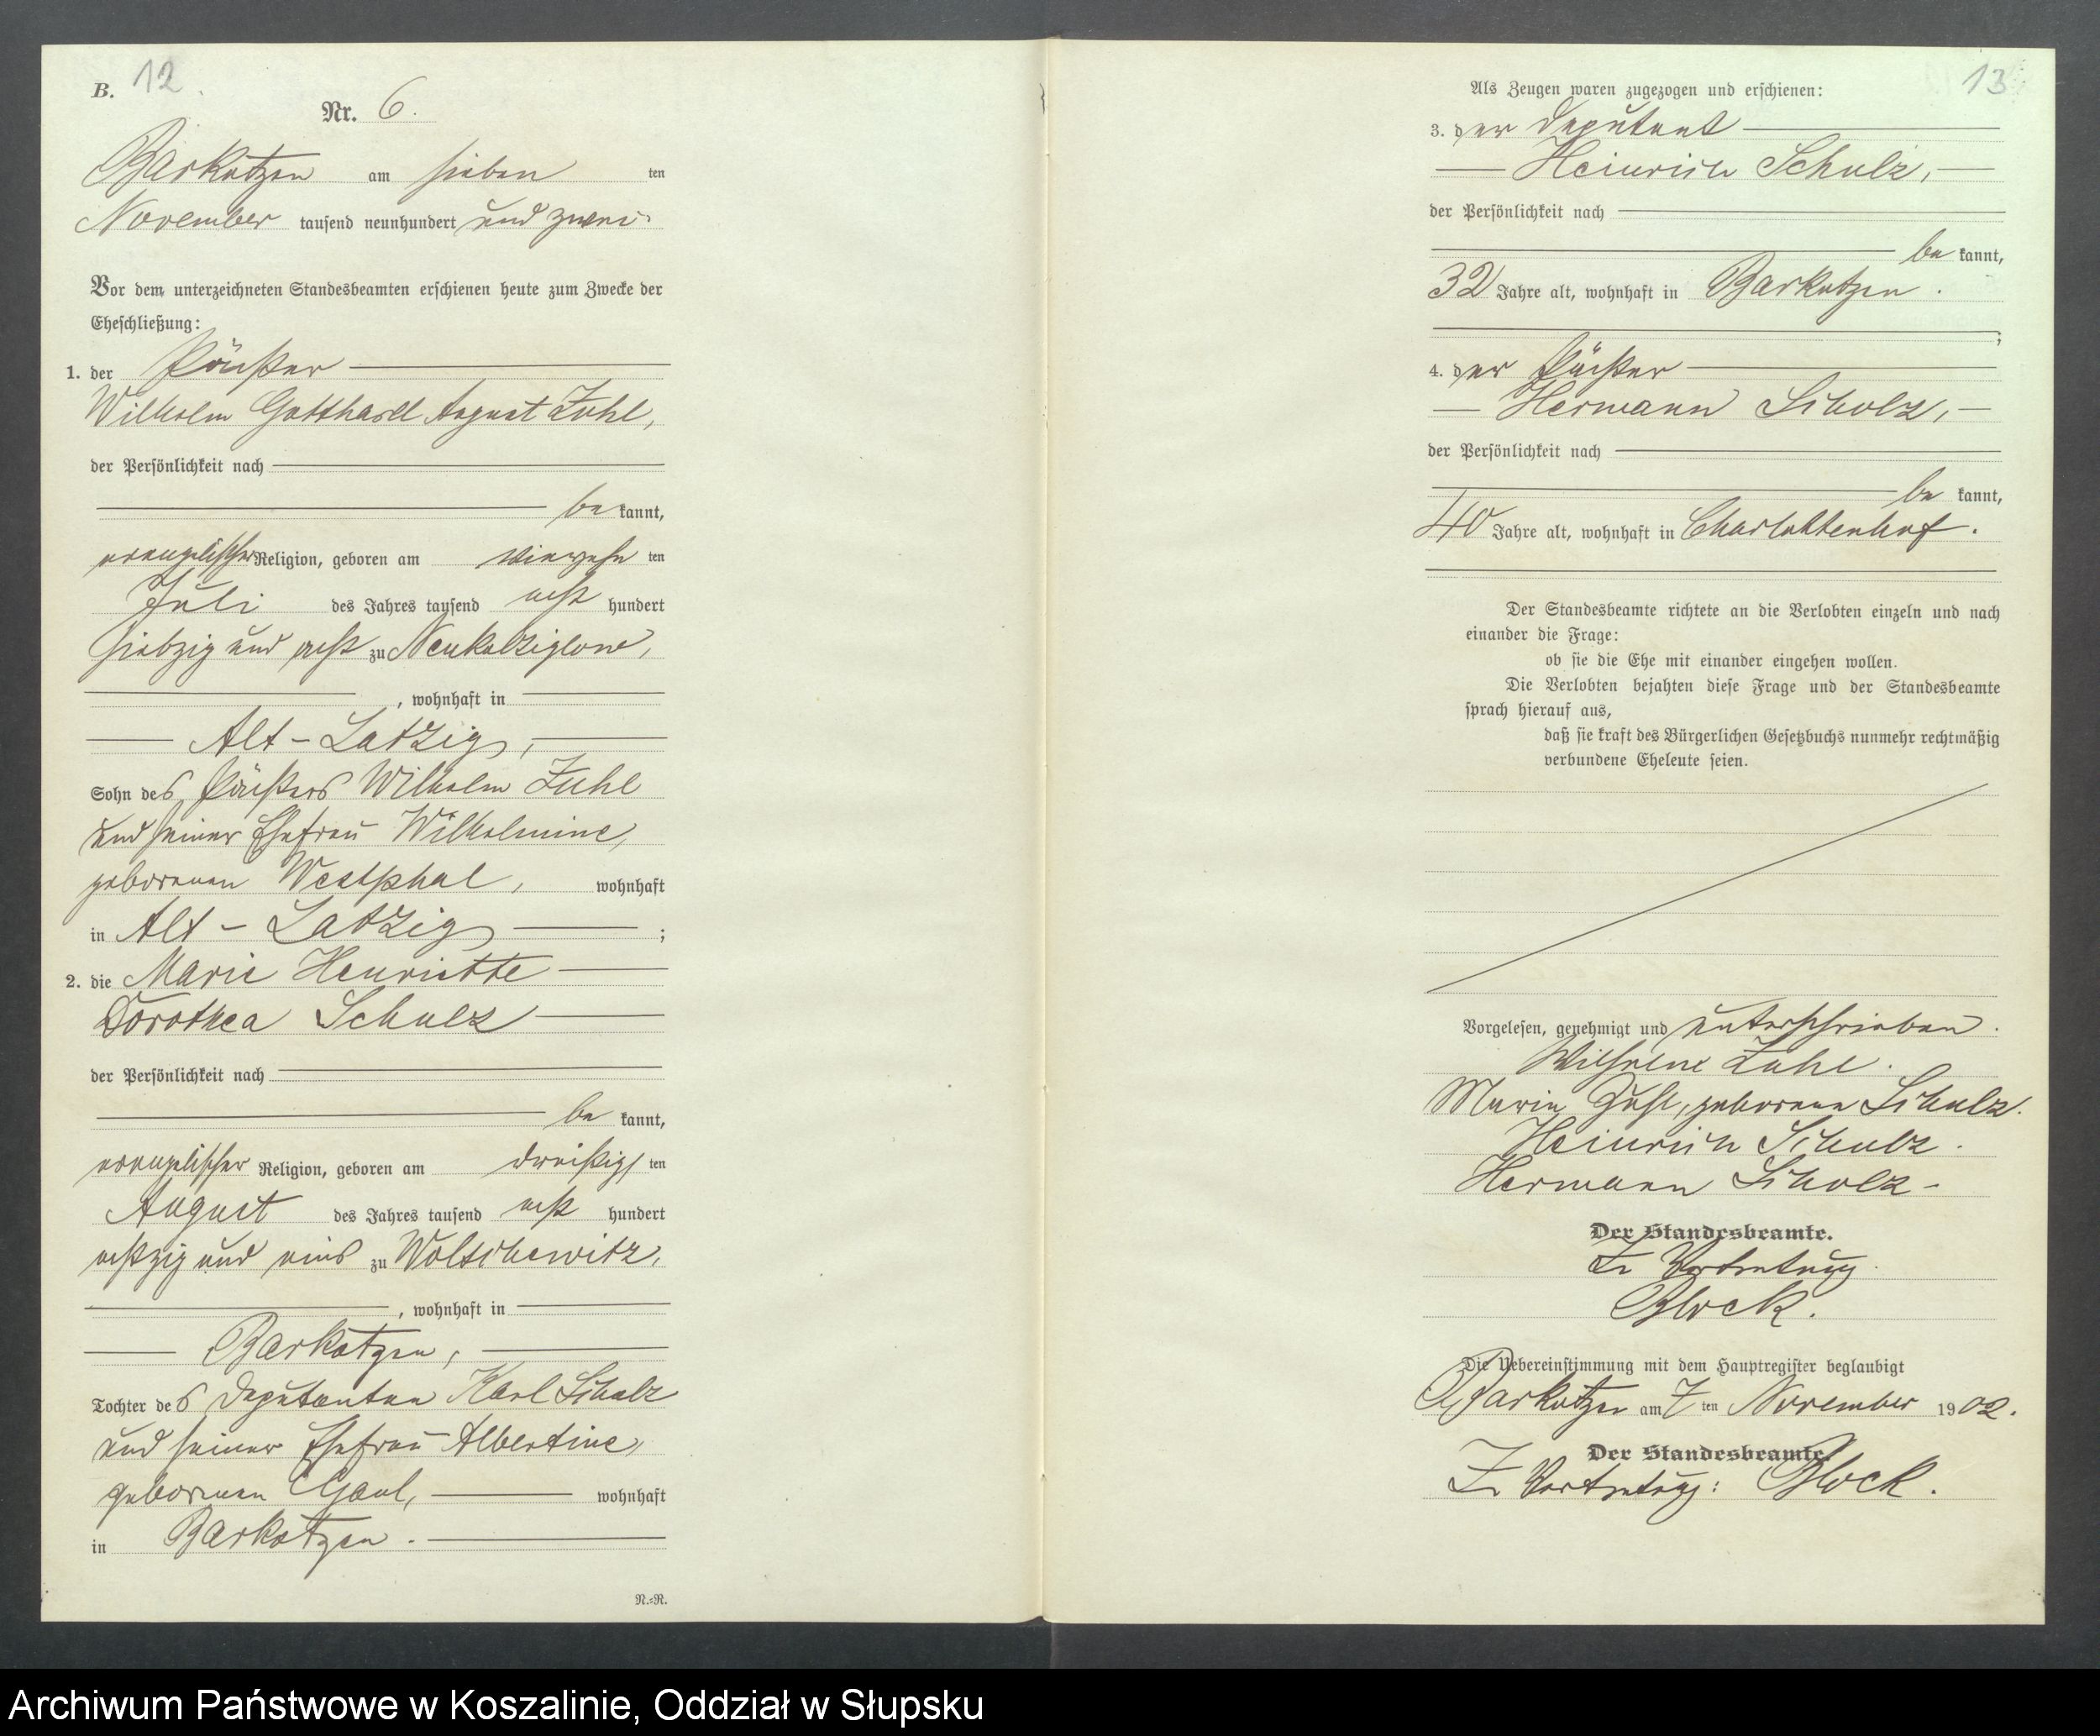 B. 12.
Nr. 6.
Barkotzen am sieben ten
November tausend neunhundert und zwei.
Vor dem unterzeichneten Standesbeamten erschienen heute zum Zwecke der
Eheschließung:
1. der Pächter
Wilhelm Gotthardt August Zuhl,
der Persönlichkeit nach
be kannt,
evangelischer Religion, geboren am vierzehn ten
Juli des Jahres tausend acht hundert
siebzig und acht zu Neukolziglow,
, wohnhaft in
Alt-Latzig,
Sohn des Pächters Wilhelm Zuhl
und seiner Ehefrau Wilhelmine,
geborenen Westphal, wohnhaft
in Alt-Latzig ;
2. die Marie Henriette
Dorothea Schulz
der Persönlichkeit nach
be kannt,
evangelischer Religion, geboren am dreißigs ten
August des Jahres tausend acht hundert
achtzig und eins zu Woltschewitz,
, wohnhaft in
Barkotzen,
Tochter des Deputanten Karl Schulz
und seiner Ehefrau Albertine,
geborenen Gaul, wohnhaft
in Barkotzen.
N.=R.
13
Als Zeugen waren zugezogen und erschienen:
3. der Deputant
Heinrich Schulz,
der Persönlichkeit nach
be kannt,
32 Jahre alt, wohnhaft in Barkotzen.
;
4. der Pächter
Hermann Scholz,
der Persönlichkeit nach
be kannt,
40 Jahre alt, wohnhaft in Charlottenhof.
Der Standesbeamte richtete an die Verlobten einzeln und nach
einander die Frage:
ob sie die Ehe mit einander eingehen wollen.
Die Verlobten bejahten diese Frage und der Standesbeamte
sprach hierauf aus,
daß sie kraft des Bürgerlichen Gesetzbuchs nunmehr rechtmäßig
verbundene Eheleute seien.
Vorgelesen, genehmigt und unterschrieben.
Wilhelm Zuhl.
Marie Zuhl, geborene Schulz.
Heinrich Schulz.
Hermann Scholz.
Der Standesbeamte.
In Vertretung
Block.
Die Uebereinstimmung mit dem Hauptregister beglaubigt
Barkotzen am 7 ten November 1902.
Der Standesbeamte.
In Vertretung: Block.
Archiwum Państwowe w Koszalinie, Oddział w Słupsku